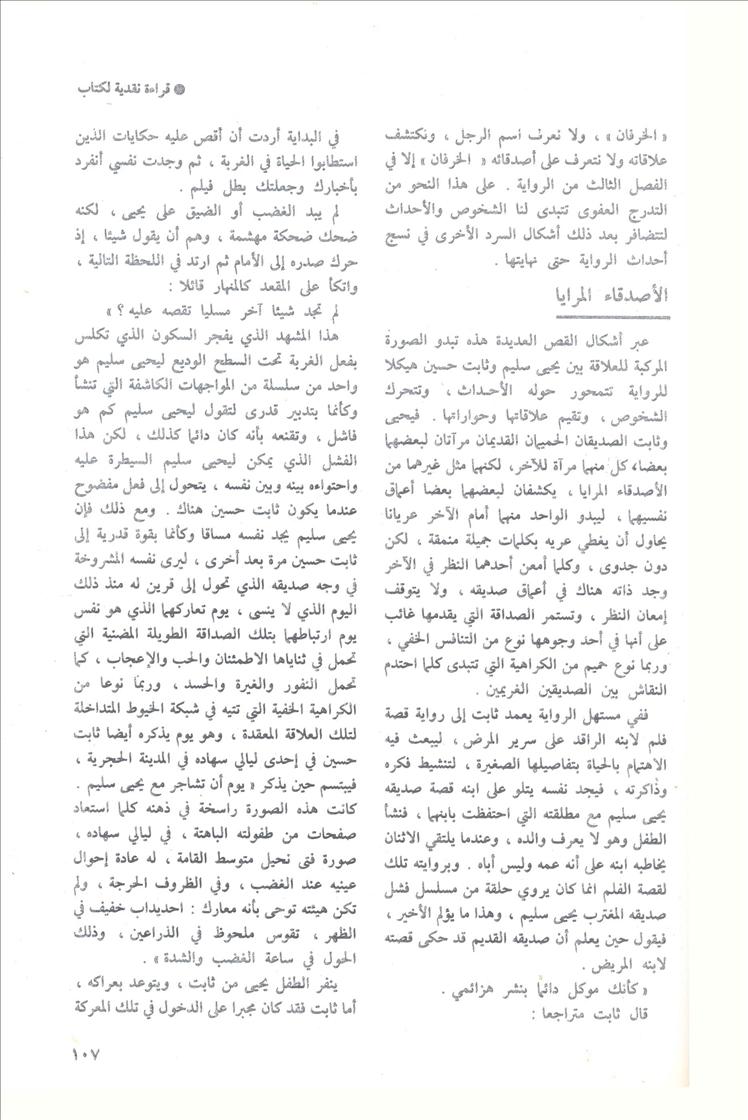 ● قراءة نقدية لكتاب
« الخرفان » ، ولا نعرف اسم الرجل ، ونكتشف
علاقاته ولا نتعرف على أصدقائه « الخرفان » إلا في
الفصل الثالث من الرواية . على هذا النحو من
التدرج العفوى تتبدى لنا الشخوص والأحداث
لتتضافر بعد ذلك أشكال السرد الأخرى في نسج
أحداث الرواية حتى نهايتها .
الأصدقاء المرايا
عبر أشكال القص العديدة هذه تبدو الصورة
المركبة للعلاقة بين يحيى سليم وثابت حسين هيكلا
للرواية تتمحور حوله الأحداث ، وتتحرك
الشخوص ، وتقيم علاقاتها وحواراتها . فيحيى
وثابت الصديقان الحميمان القديمان مرآتان لبعضهما
بعضا، كل منهما مرآة للآخر، لكنهما مثل غيرهما من
الأصدقاء المرايا ، يكشفان لبعضهما بعضا أعماق
نفسيهما ، ليبدو الواحد منهما أمام الآخر عريانا
يحاول أن يغطي عريه بكلمات جميلة منمقة ، لكن
دون جدوى ، وكلما أمعن أحدهما النظر في الآخر
وجد ذاته هناك في أعماق صديقه ، ولا يتوقف
إمعان النظر ، وتستمر الصداقة التي يقدمها غائب
على أنها في أحد وجوهها نوع من التنافس الخفي ،
وربما نوع حميم من الكراهية التي تتبدى كلما احتدم
النقاش بين الصديقين الغريمين .
ففي مستهل الرواية يعمد ثابت إلى رواية قصة
فلم لابنه الراقد على سرير المرض ، ليبعث فيه
الاهتمام بالحياة بتفاصيلها الصغيرة ، لتنشيط فكره
وذاكرته ، فيجد نفسه يتلو على ابنه قصة صديقه
يحيى سليم مع مطلقته التي احتفظت بابنهما ، فنشأ
الطفل وهو لا يعرف والده ، وعندما يلتقي الاثنان
يخاطبه ابنه على أنه عمه وليس أباه . وبروايته تلك
لقصة الفلم انما كان يروي حلقة من مسلسل فشل
صديقه المغترب يحيى سليم ، وهذا ما يؤلم الأخير ،
فيقول حين يعلم أن صديقه القديم قد حكى قصته
لابنه المريض .
« كأنك موكل دائما بنشر هزائمي .
قال ثابت متراجعا :
في البداية أردت أن أقص عليه حكايات الذين
استطابوا الحياة في الغربة ، ثم وجدت نفسي أنفرد
بأخبارك وجعلتك بطل فيلم .
لم يبد الغضب أو الضيق على يحيى ، لكنه
ضحك ضحكة مهشمة ، وهم أن يقول شيئا ، إذ
حرك صدره إلى الأمام ثم ارتد في اللحظة التالية ،
واتكأ على المقعد كالمنهار قائلا :
لم تجد شيئا آخر مسليا تقصه عليه ؟ »
هذا المشهد الذي يفجر السكون الذي تكلس
بفعل الغربة تحت السطح الوديع ليحيى سليم هو
واحد من سلسلة من المواجهات الكاشفة التي تنشأ
وكأنما بتدبير قدرى لتقول ليحيى سليم كم هو
فاشل ، وتقنعه بأنه كان دائما كذلك ، لكن هذا
الفشل الذي يمكن ليحيى سليم السيطرة عليه
واحتواءه بينه وبين نفسه ، يتحول إلى فعل مفضوح
عندما يكون ثابت حسين هناك . ومع ذلك فإن
يحيى سليم يجد نفسه مساقا وكأنما بقوة قدرية إلى
ثابت حسين مرة بعد أخرى ، ليرى نفسه المشروخة
في وجه صديقه الذي تحول إلى قرين له منذ ذلك
اليوم الذي لا ينسى ، يوم تعاركهما الذي هو نفس
يوم ارتباطهما بتلك الصداقة الطويلة المضنية التي
تحمل في ثناياها الاطمئنان والحب والإعجاب ، كما
تحمل النفور والغيرة والحسد ، وربما نوعا من
الكراهية الخفية التي تتيه في شبكة الخيوط المتداخلة
لتلك العلاقة المعقدة ، وهو يوم يذكره أيضا ثابت
حسين في إحدى ليالي سهاده في المدينة الحجرية ،
فيبتسم حين يذكر « يوم أن تشاجر مع يحيى سليم .
كانت هذه الصورة راسخة في ذهنه كلما استعاد
صفحات من طفولته الباهتة ، في ليالي سهاده ،
صورة فتى نحيل متوسط القامة ، له عادة إحوال
عينيه عند الغضب ، وفي الظروف الحرجة ، ولم
تكن هيئته توحى بأنه معارك : احديداب خفيف في
الظهر ، تقوس ملحوظ في الذراعين ، وذلك
الحول في ساعة الغضب والشدة » .
ينفر الطفل يحيى من ثابت ، ويتوعد بعراكه ،
أما ثابت فقد كان مجبرا على الدخول في تلك المعركة
١٠٧